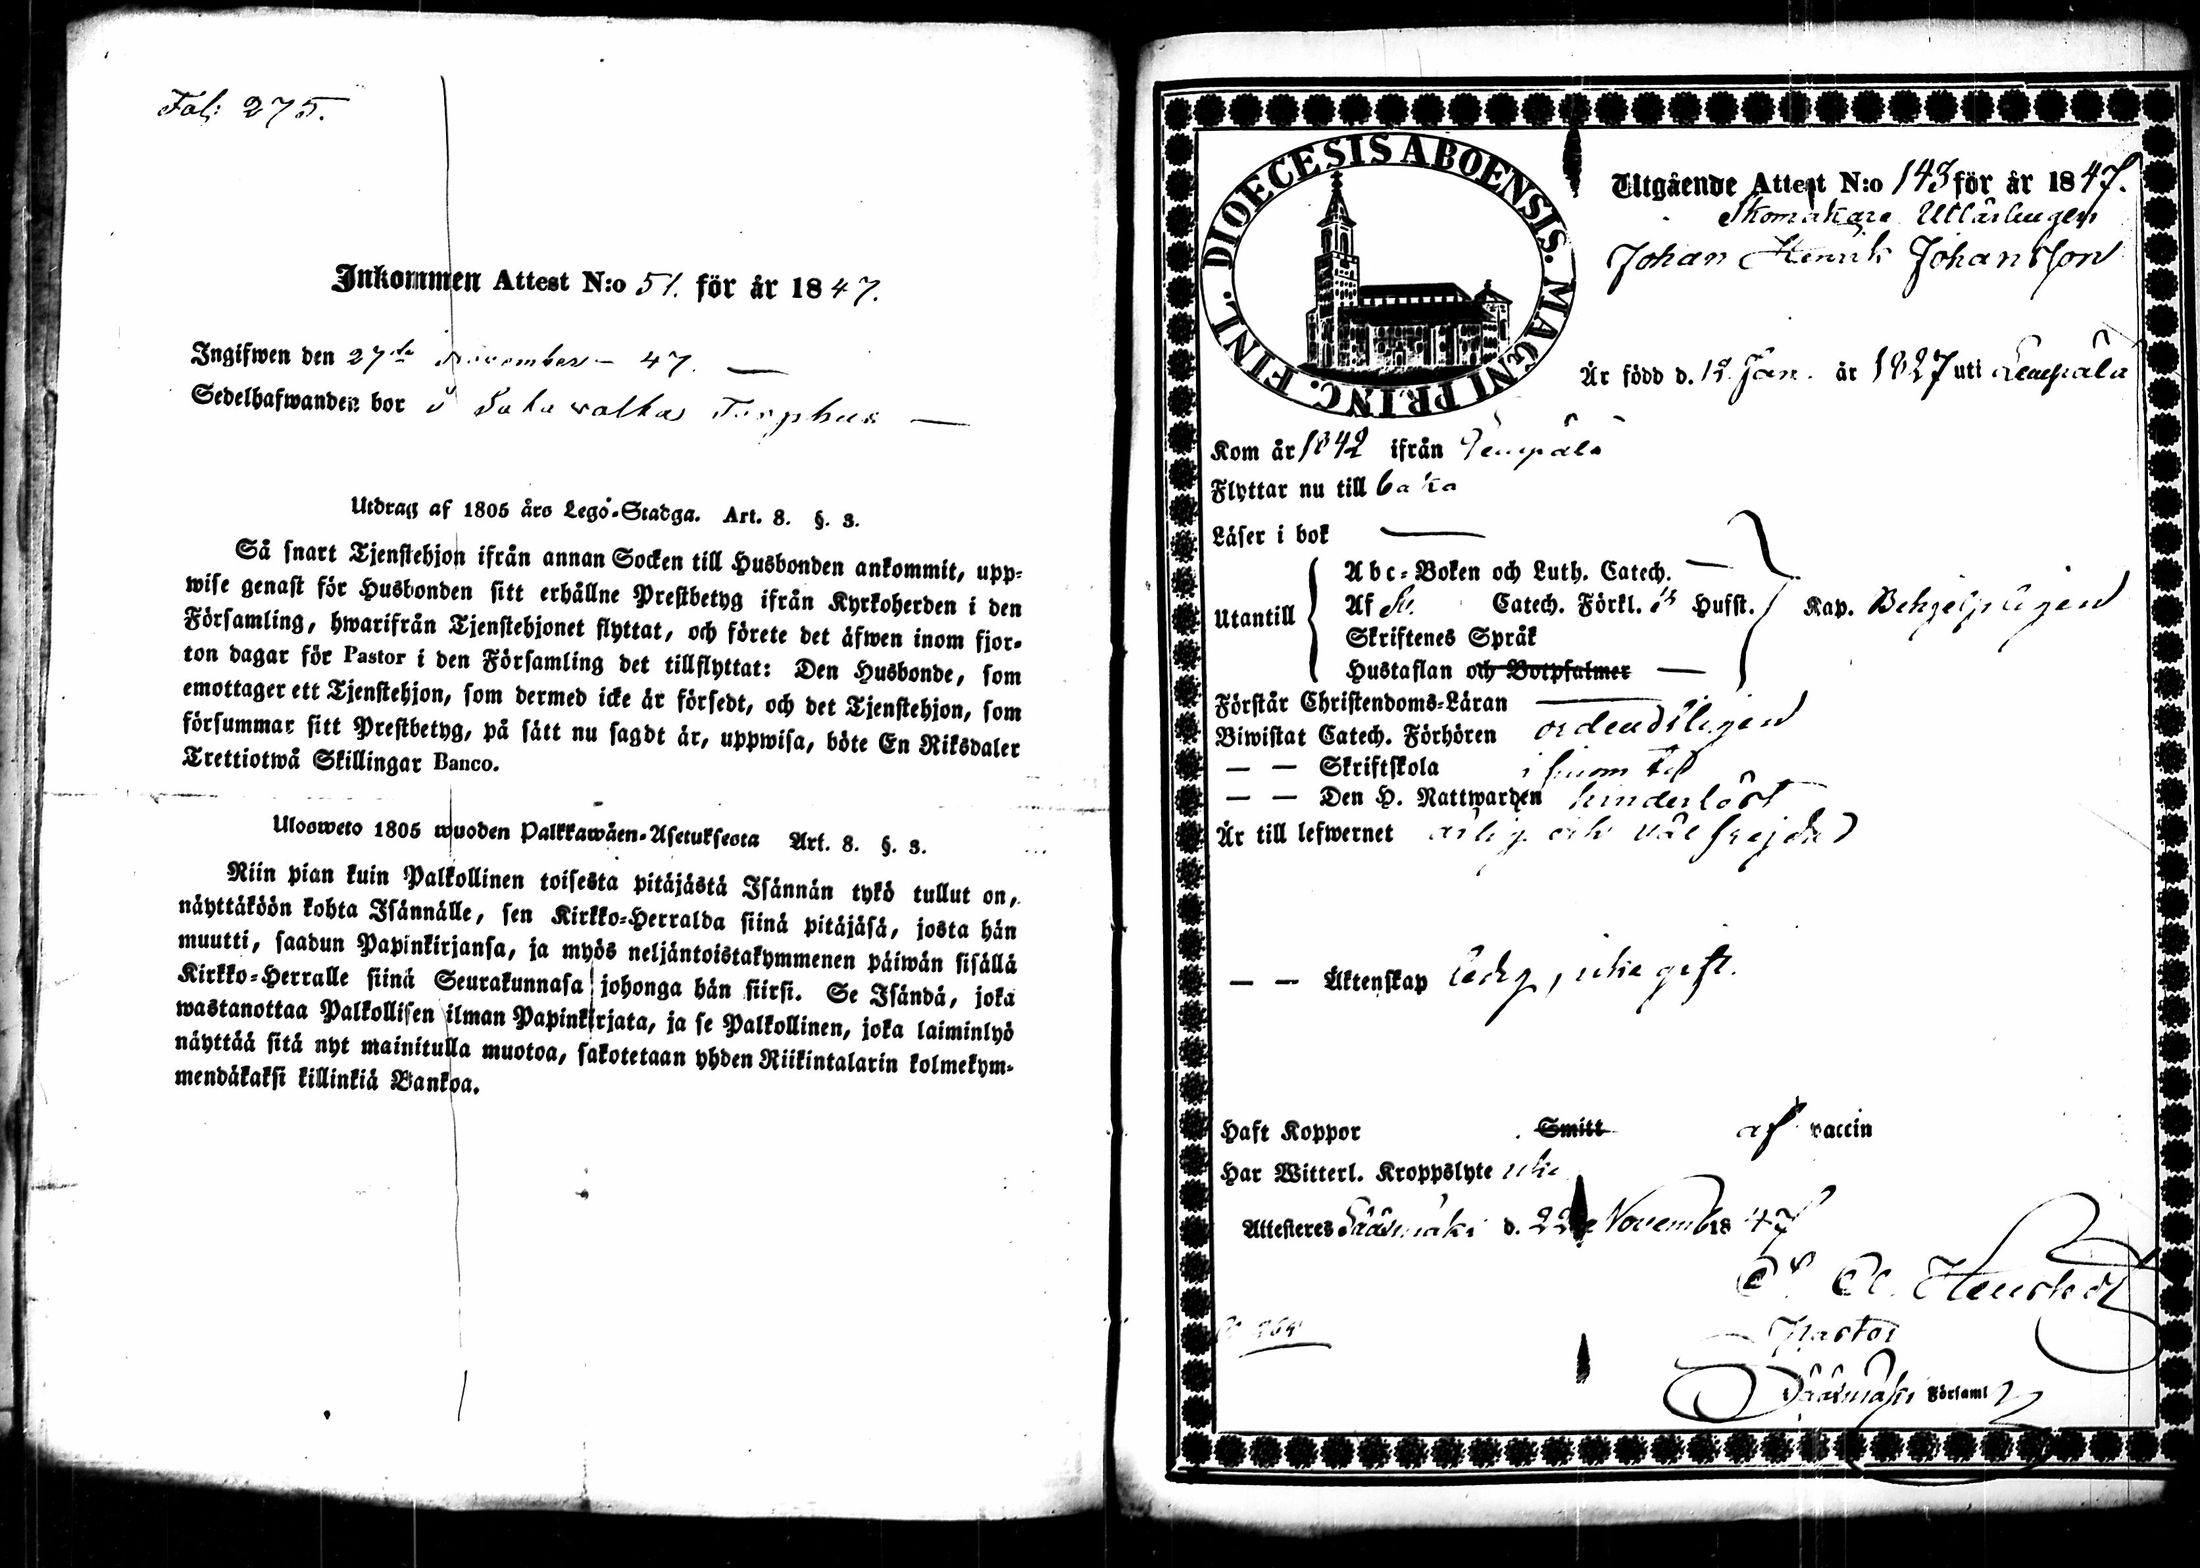 Fol: 275.
Inkommen Attest N:o 51. för år 1847.
Ingifwen den 27de November 47.
Sedelhafwanden bor i
Utdrag af 1805 års Lego-Stadga. Art. 8. §. 3.
Så snart Tjenstehjon ifrån annan Socken till Husbonden ankommit, upp-
wise genast för Husbonden sitt erhållne Prestbetyg ifrån Kyrkoherden i den
Församling, hwarifrån Tjenstehjonet flyttat, och förete det äfwen inom fjor-
ton dagar för Pastor i den Församling det tillflyttat: Den Husbonde, som
emottager ett Tjenstehjon, som dermed icke är försedt, och det Tjenstehjon, som
försummar sitt Prestbetyg, på sätt nu sagdt är, uppwisa, böte En Riksdaler
Trettiotwå Skillingar Banco.
Ulosweto 1805 wuoden Palkkawäen-Asetuksesta Art. 8. §. 3.
Niin pian kuin Palkollinen toisesta pitäjästä Isännän tykö tullut on,
näyttäköön kohta Isännälle, sen Kirkko-Herralda siinä pitäjäsä, josta hän
muutti, saadun Papinkirjansa, ja myös neljäntoistakymmenen päiwän sisällä
Kirkko-Herralle siinä Seurakunnasa johonga hän siirsi. Se Isändä, joka
wastanottaa Palkollisen ilman Papinkirjata, ja se Palkollinen, joka laiminlyö
näyttää sitä nyt mainitulla muotoa, sakotetaan yhden Riikintalarin kolmekym-
mendäkaksi killinkiä Bankoa.
DIOECESIS ABOENSIS. MAGNI PRINC. FINL.
Utgående Attest N:o 143 för år 1847.
Skomakare Utlärlingen
Johan Henrik Johansson
Är född d. 12. Jan. år 1827 uti Lempälä
Kom år 1842 ifrån Lempälä
Flyttar nu till baka
Läser i bok
Utantill
Abc-Boken och Luth. Catech.
Af Sv. Catech. Förkl. Hufst. Kap. Behjelpligen
Skriftenes Språk
Hustaflan och Botpsalmer
Förstår Christendoms-Läran
Biwistat Catech. Förhören ordentligen
— — Skriftskola i sinom tid
— — Den H. Nattwarden hinderlöst
Är till lefwernet ärlig och väl frejdad
— — Äktenskap ledig, icke gift.
Haft Koppor Smitt af vaccin
Har Witterl. Kroppslyte icke
Attesteres Sääxmäki d. 22 November 1847
Pastor
Sääxmäki Församl